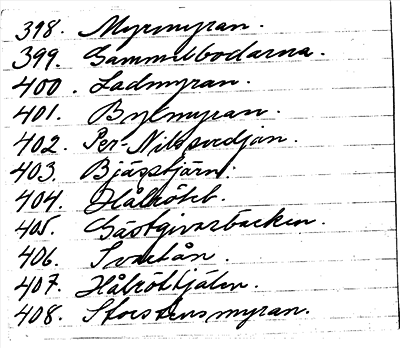 398. Myrmyran.
399. Gammelbodarna.
400. Ladmyran.
401. Bylmyran.
402. Per-Nilsvedjan.
403. Bjässtjärn.
404. Hålröteb.
405. Gästgivarbacken.
406. Svartån.
407. Hålröttjälen.
408. myran.